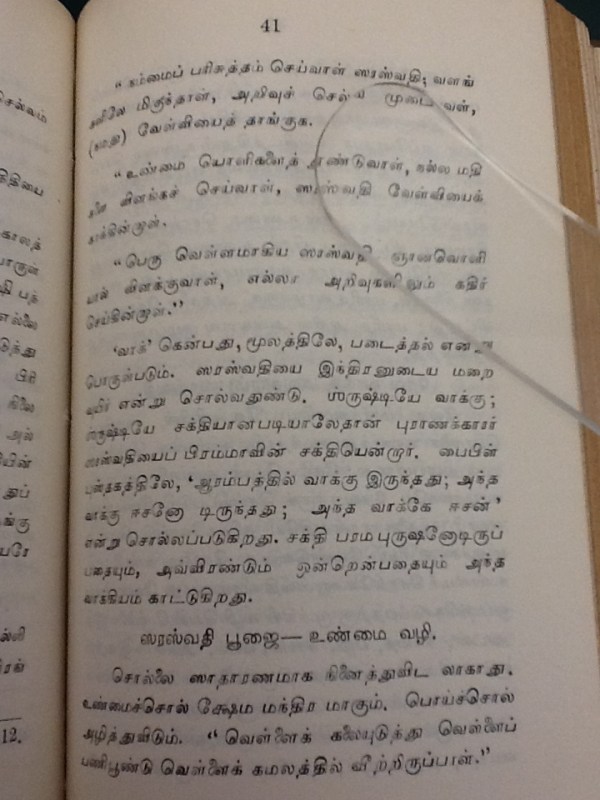 41
செல்வம்
“ நம்மைப் பரிசுத்தம் செய்வாள் ஸரஸ்வதி; வளங்
களிலே மிகுந்தாள், அறிவுச் செல்வ முடையவள்,
(நமது) வேள்வியைத் தாங்குக.
“உண்மை யொளிகளைத் தூண்டுவாள், நல்ல மதி
களை விளங்கச் செய்வாள், ஸரஸ்வதி வேள்வியைக்
காக்கின்றாள்.
“பெரு வெள்ளமாகிய ஸரஸ்வதி ஞானவொளி
யால் விளக்குவாள், எல்லா அறிவுகளிலும் கதிர்
செய்கின்றாள்.”
‘வாக்’ கென்பது, மூலத்திலே, படைத்தல் என்று
பொருள்படும். ஸரஸ்வதியை இந்திரனுடைய மறை
யுயிர் என்று சொல்வதுண்டு. ஸ்ருஷ்டியே வாக்கு;
ஸ்ருஷ்டியே சக்தியானபடியாலேதான் புராணக்காரர்
ஸரஸ்வதியைப் பிரம்மாவின் சக்தியென்றார். பைபிள்
புஸ்தகத்திலே, ‘ஆரம்பத்தில் வாக்கு இருந்தது; அந்த
வாக்கு ஈசனோ டிருந்தது; அந்த வாக்கே ஈசன்’
என்று சொல்லப்படுகிறது. சக்தி பரம புருஷனோடிருப்
பதையும், அவ்விரண்டும் ஒன்றென்பதையும் அந்த
வாக்கியம் காட்டுகிறது.
ஸரஸ்வதி பூஜை— உண்மை வழி.
சொல்லை ஸாதாரணமாக நினைத்துவிட லாகாது.
உண்மைச்சொல் க்ஷேம மந்திர மாகும். பொய்ச்சொல்
அழித்துவிடும். “ வெள்ளைக் கலையுடுத்து வெள்ளைப்
பணிபூண்டு வெள்ளைக் கமலத்தில் வீற்றிருப்பாள்.”
12.